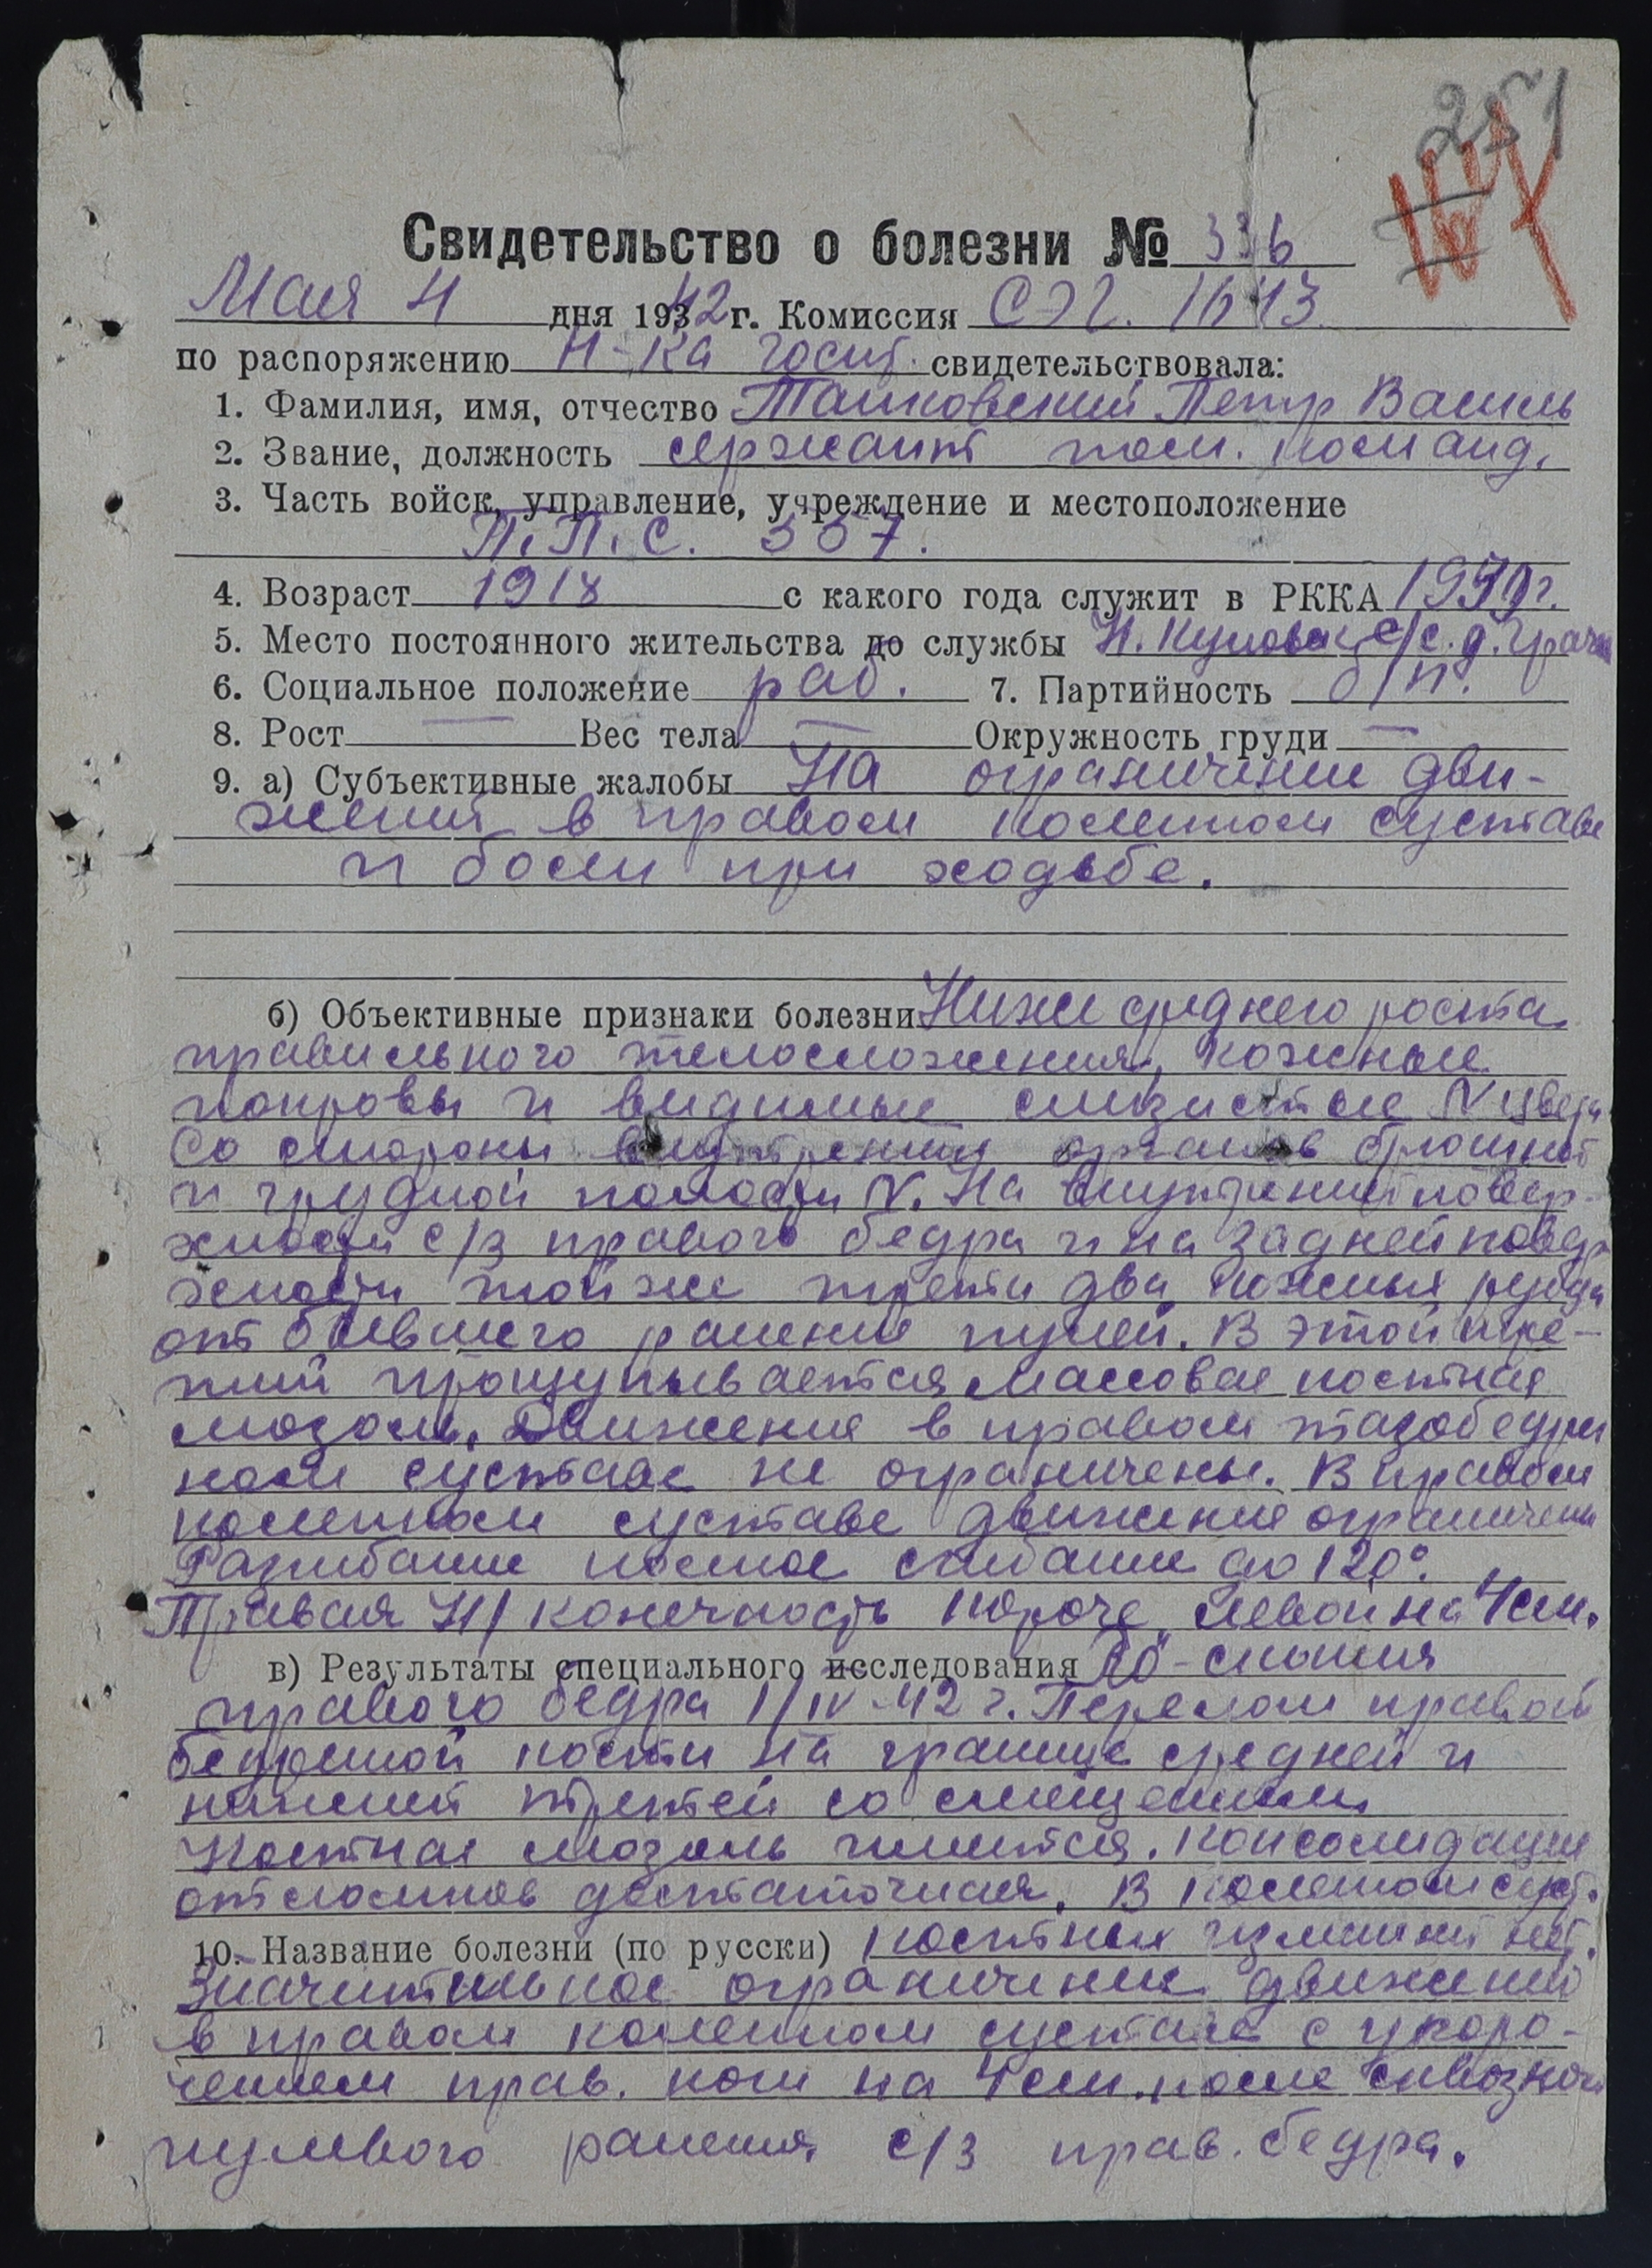 251
Свидетельство о болезни № 336
Мая 4 дня 1942 г. Комиссия СЭГ. 1643
по распоряжению Н-ка госп. свидетельствовала:
1. Фамилия, имя, отчество Петр Василь
2. Звание, должность сержант пом. команд.
3. Часть войск, управление, учреждение и местоположение
П.П.С. 357.
4. Возраст 1918 с какого года служит в РККА
5. Место постоянного жительства до службы с/с. д.
6. Социальное положение раб. 7. Партийность б/п.
8. Рост — Вес тела — Окружность груди —
9. а) Субъективные жалобы На ограничение дви-
жений в правом коленном суставе
и боли при ходьбе.
б) Объективные признаки болезни Ниже среднего роста
правильного телосложения, кожные
покровы и видимые слизистые N цвета
Со стороны внутренних органов брюшной
и грудной полости N. На внутренней повер-
хности с/з правого бедра и на задней повер
хности той же трети два кожных рубца
от бывшего ранения пулей. В этой тре-
ти прощупывается массовая костная
мозоль. Движения в правом тазобедрен
ном суставе не ограничены. В правом
коленном суставе движения ограничены
Разгибание полное сгибание до 120°.
Правая Н/конечность короче левой на 4 см.
в) Результаты специального исследования Ro-скопия
правого бедра 1/IV-42 г. Перелом правой
бедренной кости на границе средней и
нижней третей со смещением
Костная мозоль имеется. Консолидация
отломков достаточная. В коленном суст.
10. Название болезни (по русски) костных измен нет.
Значительное ограничение движений
в правом коленном суставе с укоро-
чением прав. ноги на 4 см. после сквозного
пулевого ранения с/з прав. бедра.